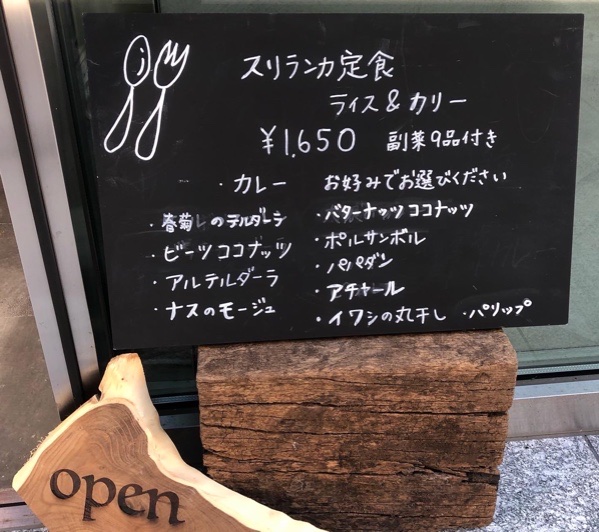 スリランカ定食
ライス&カリー
¥1,650 副菜9品付き
・カレー お好みでお選びください
・春菊のテルダーラ
・ビーツココナッツ
・アルテルダーラ
・ナスのモージュ
・バターナッツココナッツ
・ポルサンボル
・パパダン
・アチャール
・イワシの丸干し ・パリップ
open